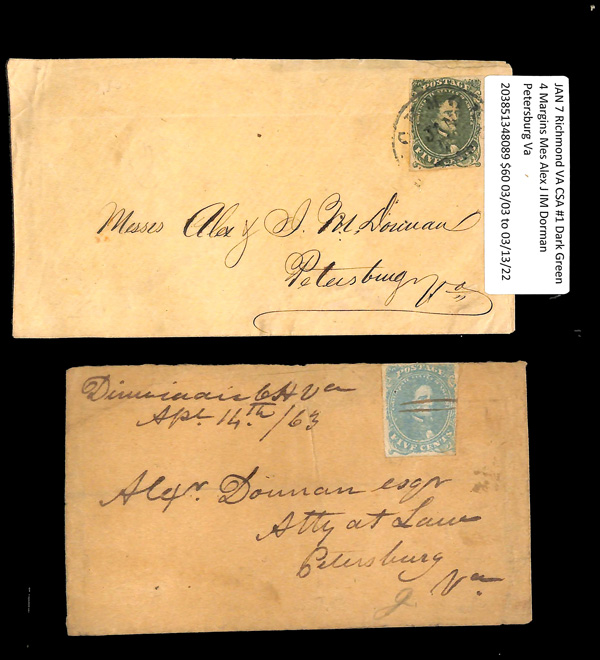 POSTAGE
FIVE CENTS
JAN 7 Richmond VA CSA #1 Dark Green
4 Margins Mes Alex J IM Dorman
Petersburg Va
203851348089 $60 03/03 to 03/13/22
Messrs Alex & J. M. Donnan
Petersburg
Va
POSTAGE
FIVE CENTS
Dinwiddie CH Va
Apl. 14th /63
Alexr. Donnan esqr
Atty at Law
Petersburg
Va